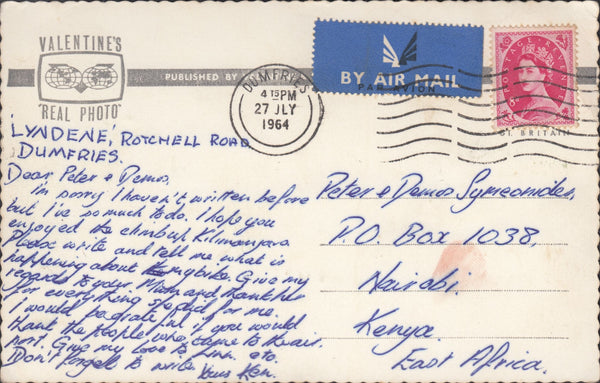 VALENTINE'S
"REAL PHOTO"
PUBLISHED BY
BY AIR MAIL
PAR AVION
DUMFRIES
4 15 PM
27 JLY
1964
POSTAGE REVENUE
8D
GT. BRITAIN
'LYNDENE', ROTCHELL ROAD
DUMFRIES.
Dear Peter & Demos,
I'm sorry I haven't written before
but I've so much to do. I hope you
enjoyed the climb up Kilimanjaro
Please write and tell me what is
happening about my bike. Give my
regards to your Mum and thank her
for everything she did for me.
I would be grateful if you would
thank the people who came to the air-
port. Give my love to Lynn. etc.
Don't forget to write Yours Ken.
Peter & Demos Symeonides,
P.O. Box 1038,
Nairobi.
Kenya.
East Africa.